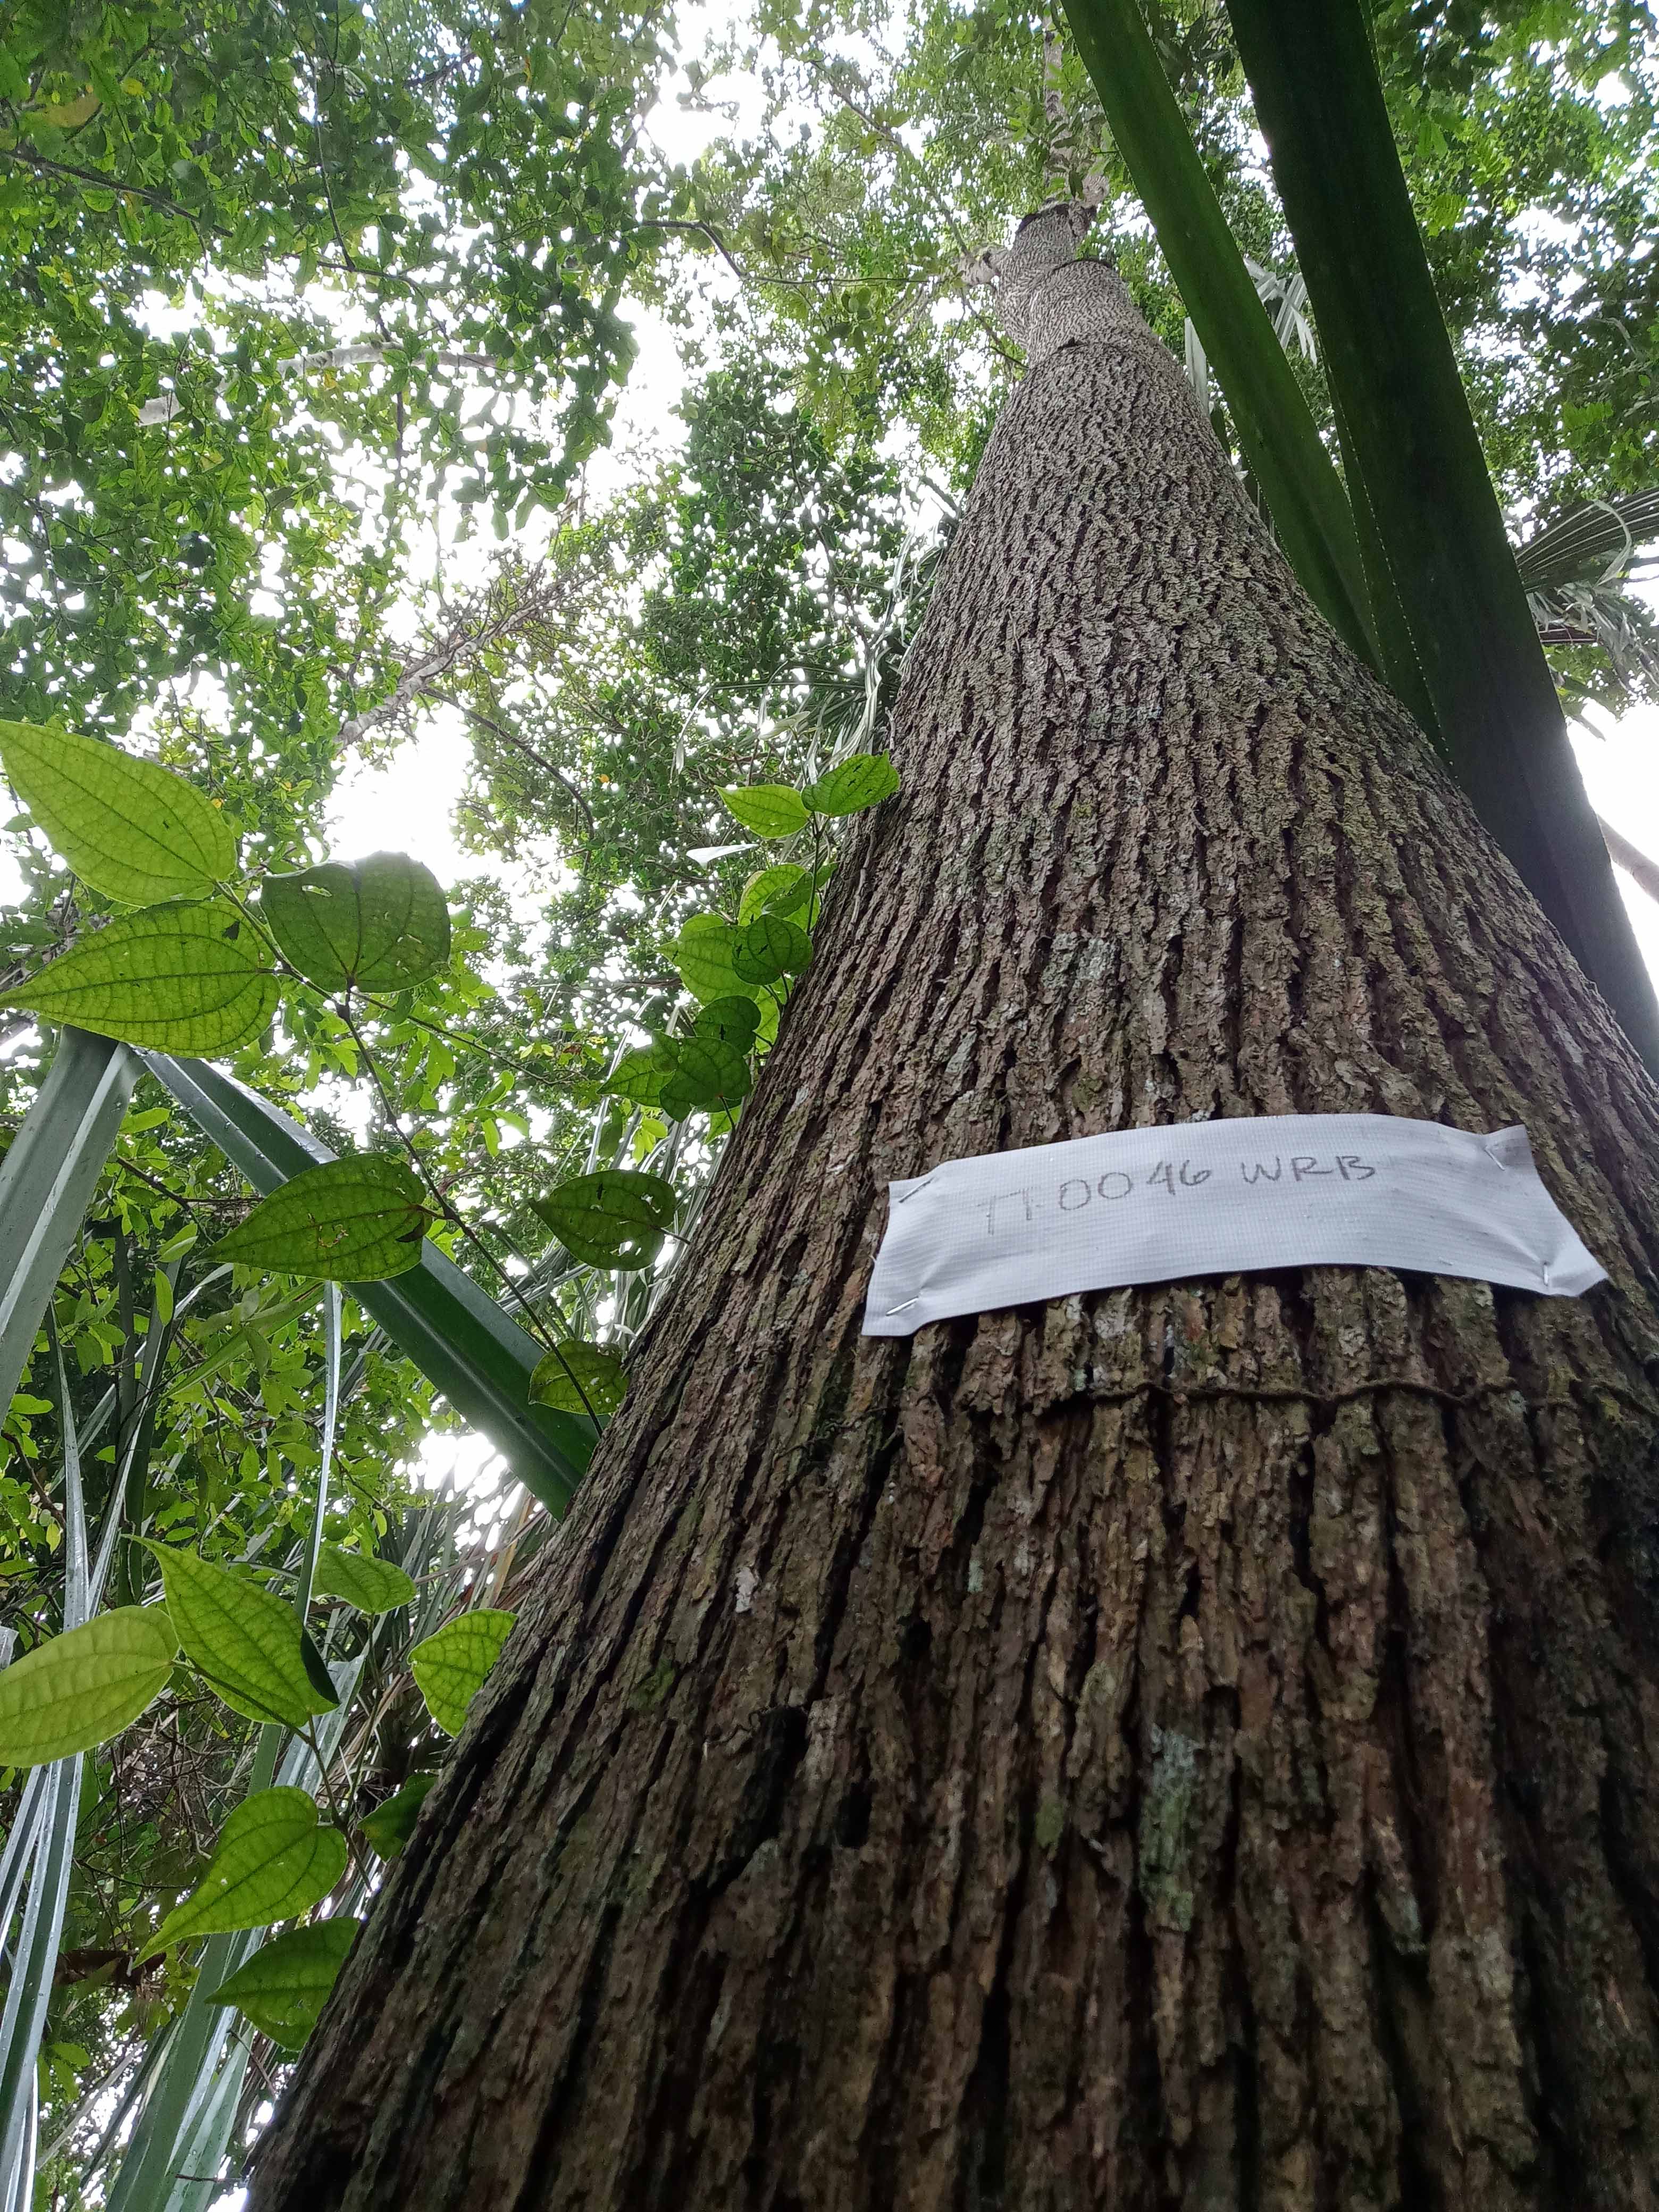 TT 0046 WRB